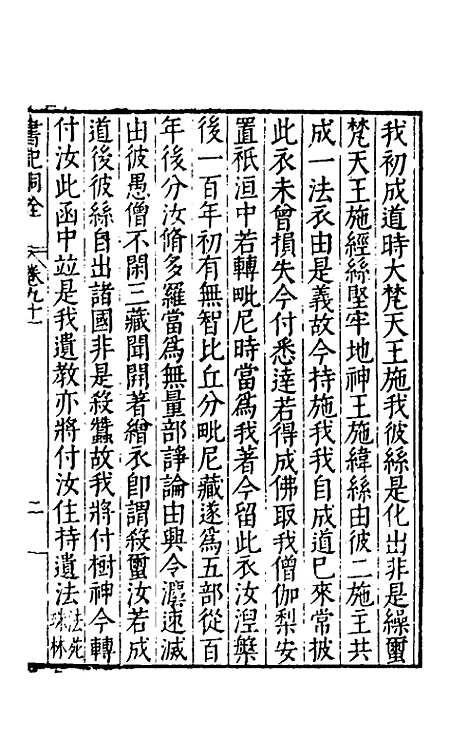 我初成道時大梵天王施我彼絲是化出非是繰璽
梵天王施經絲堅牢地神王施緯絲由彼二施主共
成一法衣由是義故今持施我我自成道已來常披
此衣未曾損失今付悉達若得成佛取我僧伽梨安
置祇洹中若轉毗尼時當爲我著今留此衣汝涅槃
後一百年初有無智比丘分毗尼藏遂爲五部從百
年後分汝脩多羅當爲無量部諍論由興令瀍速滅
由彼愚僧不閑三藏聞開著繒衣卽謂殺璽汝若成
道後彼絲自出諸國非是殺蠶故我將付樹神今轉
付汝此函中竝是我遺教亦將付汝住持遺法法苑珠林
書記洞詮 卷九十一 二